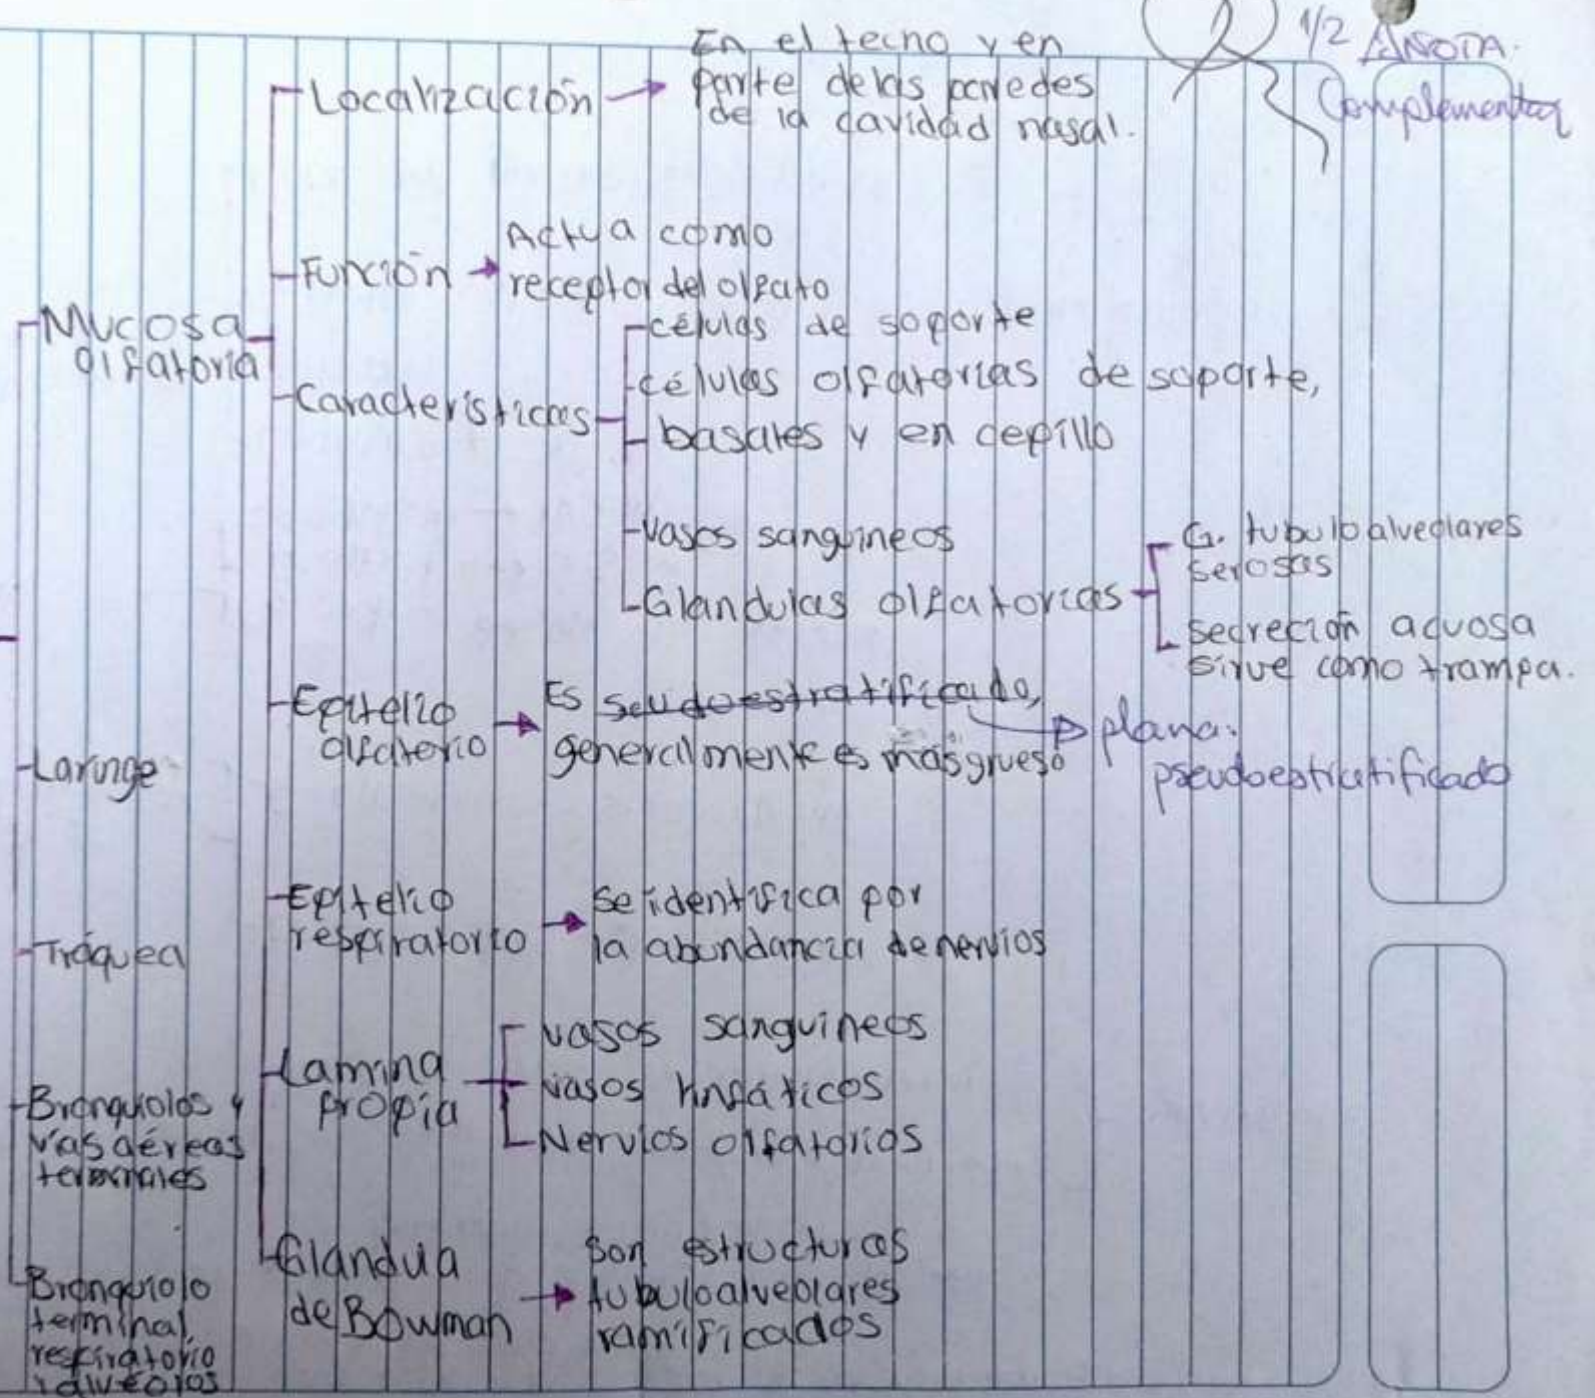 1/2 ANOTA.
Complementar
Mucosa
olfatoria
Localización
En el tecno y en
parte de las paredes
de la cavidad nasal.
Función
Actua como
receptor del olfato
Características
células de soporte
células olfatorias de soporte,
basales y en cepillo
Vasos sanguineos
Glandulas olfatorias
G. tubuloalveolares
serosas
secreción acuosa
sirve como trampa.
Epitelio
olfatorio
Es seudoestratificado,
generalmente es mas grueso
plana.
pseudoestratificado
Epitelio
respiratorio
se identifica por
la abundancia de nervios
Lamina
propia
vasos sanguineos
vasos linfáticos
Nervios olfatorios
Glandula
de Bowman
Son estructuras
tubuloalveolares
ramificados
Laringe
Tráquea
Bronquiolos y
vías aéreas
terminales
Bronquiolo
terminal,
respiratorio
y alvéolos